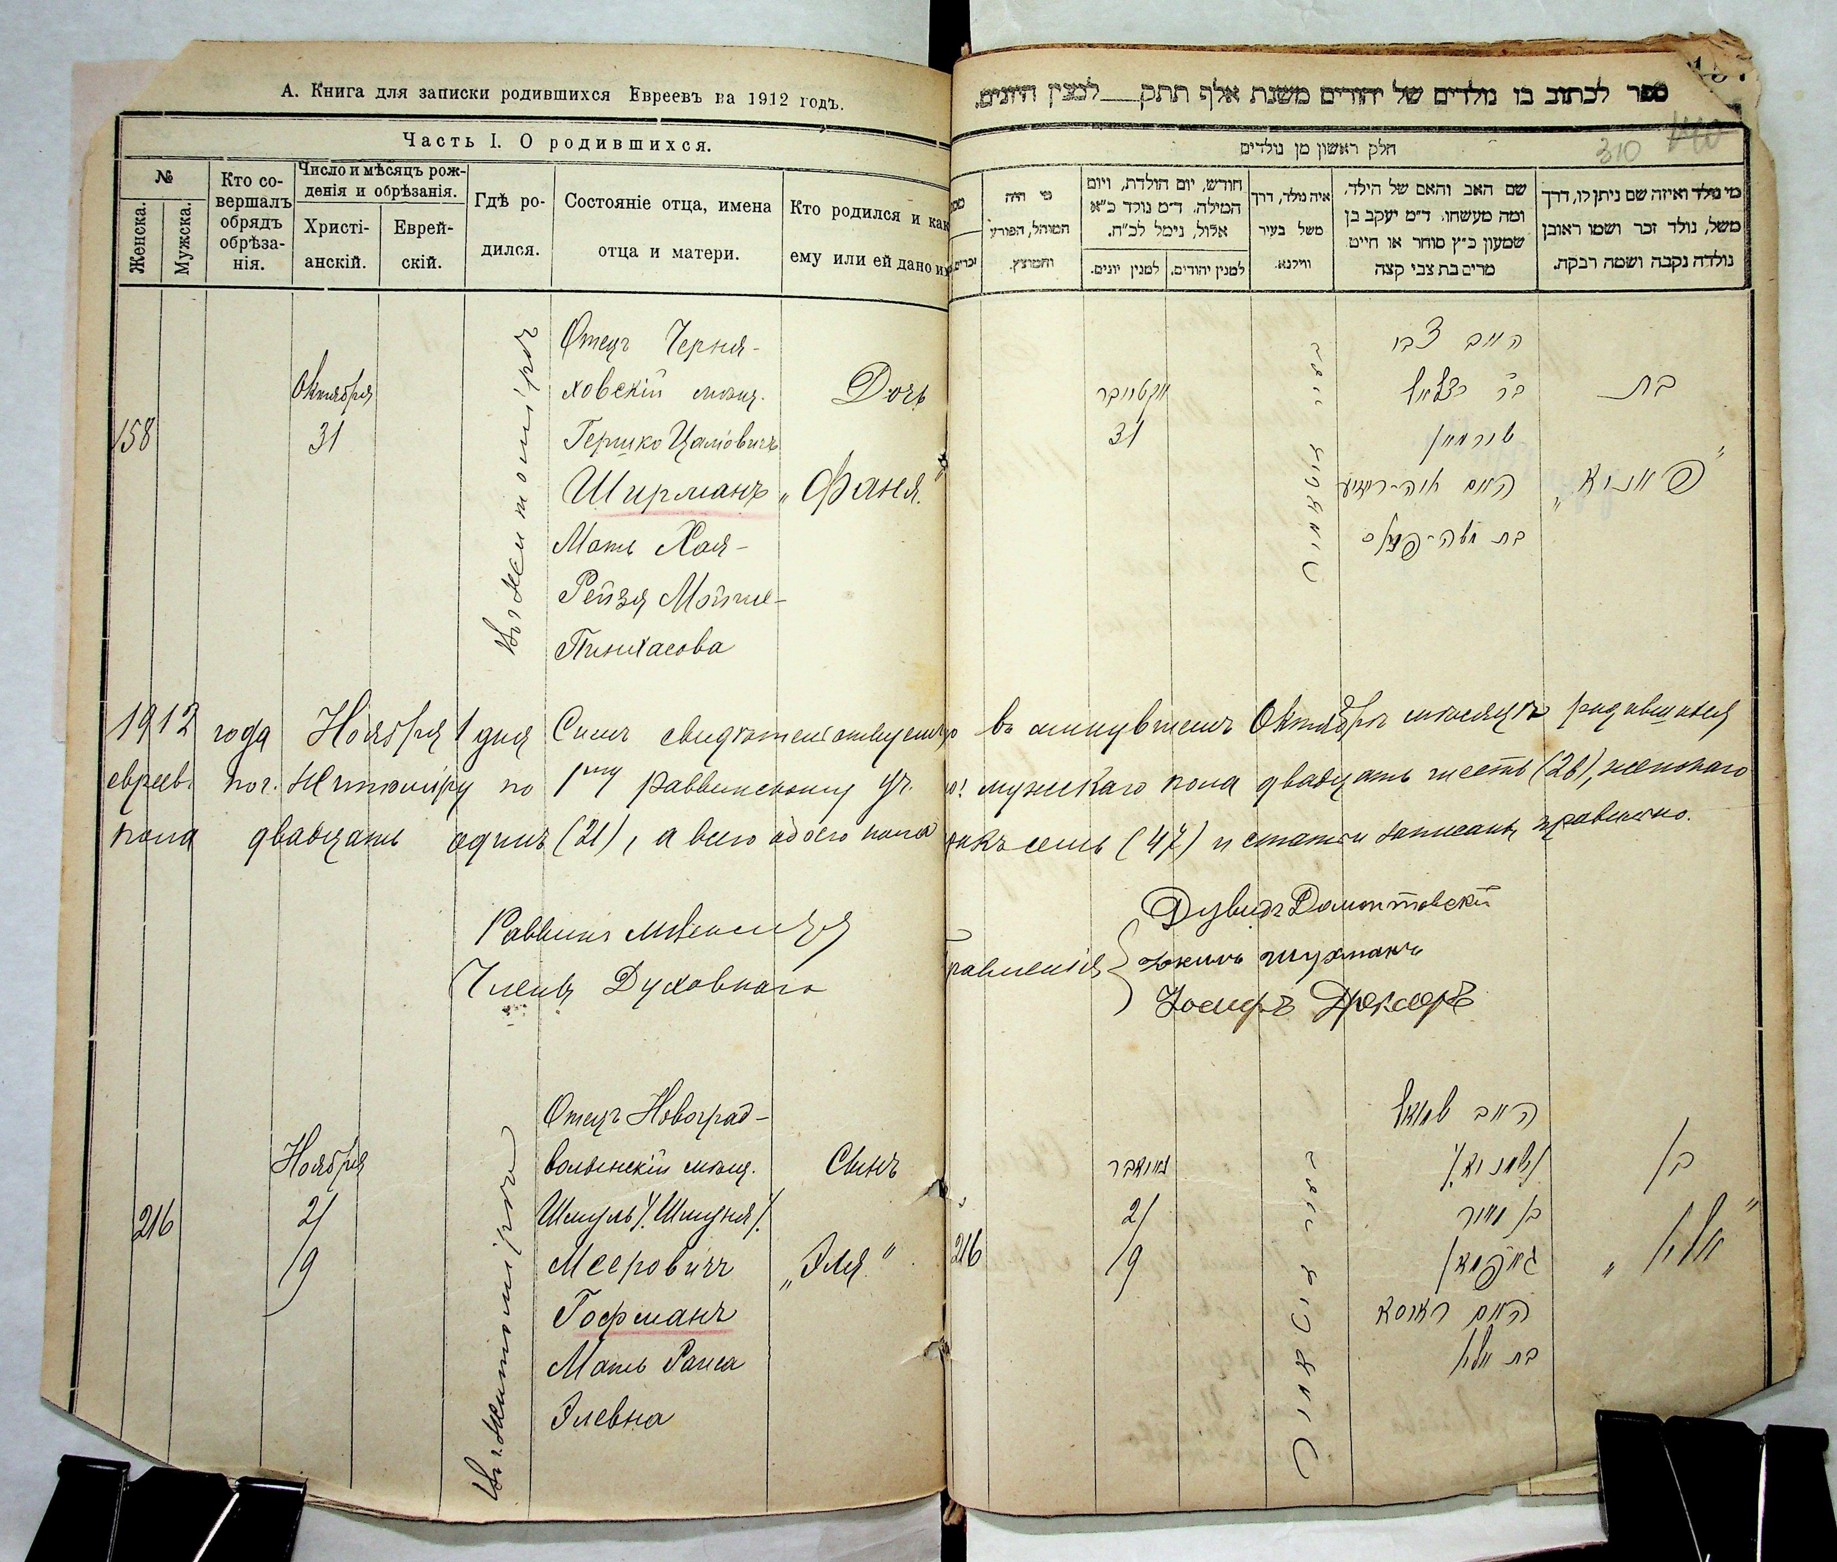 А. Книга для записки родившихся Евреевъ на 1912 годъ.
Часть I. О родившихся.
№
Женска.
Мужска.
Кто со-
вершалъ
обрядъ
обрѣза-
нія.
Число и мѣсяцъ рож-
денія и обрѣзанія.
Христі-
анскій.
Еврей-
скій.
Гдѣ ро-
дился.
Состояніе отца, имена
отца и матери.
Кто родился и как
ему или ей дано им
158
Октября
31
въ г. Житомірѣ
Отецъ Черня-
ховскій мѣщ.
Гершко Цалiовичъ
Ширманъ
Мать Хая-
Рейзя Мойше-
Пинхасова
Дочь
„Фаня.“
1912 года Ноября 1 дня Симъ свидѣтельствуемъ
евреевъ по г. Житоміру по 1му раввинскому уч.
пола двадцать одинъ (21), а всего обоего пола
Раввинъ
Члены Духовнаго
216
Ноября
2/
9
въ г. Житомірѣ
Отецъ Новоград-
волынскій мѣщ.
Шмуль /Шмуня/
Мееровичъ
Гофманъ
Мать Раиса
Элевна
Сынъ
„Эля“
ספר לכתוב בו נולדים של יהודים משנת אלף תתק___ למנין היונים.
310
חלק ראשון מן נולדים
מי נולד ואיזה שם ניתן לו, דרך
משל, נולד זכר ושמו ראובן
נולדה נקבה ושמה רבקה.
שם האב והאם של הילד,
ומה מעשהו, ד״מ יעקב בן
שמעון כ״ץ סוחר או חייט
מרים בת צבי קצה
איה נולד, דרך
משל בעיר
ווילנא.
חודש, יום הולדת, ויום
המילה, ד״מ נולד כ״א
אלול, נימל לכ״ח.
למנין יהודים.
למנין יונים.
מי היה
המוהל, הפורע
והמוצץ.
זכרים.
בת
„פאניא“
האב צבי
בר בצלאל
שירמאן
האם חיה-רייזע
בת משה-פנחס
בעיר זיטאמיר
אקטאבר
31
въ минувшемъ Октябрѣ мѣсяцѣ родившихся
мужскаго пола двадцать шесть (26), женскаго
семь (47) и статьи записаны правильно.
Правленія
Дувидъ Домонтовскій
Шухманъ
Іосифъ Дрекслеръ
בן
„אלי“
האב שמואל
/שמוניא/
בן מאיר
גאפמאן
האם ראיסא
בת אלי
בעיר זיטאמיר
נאיאבר
2/
9
216